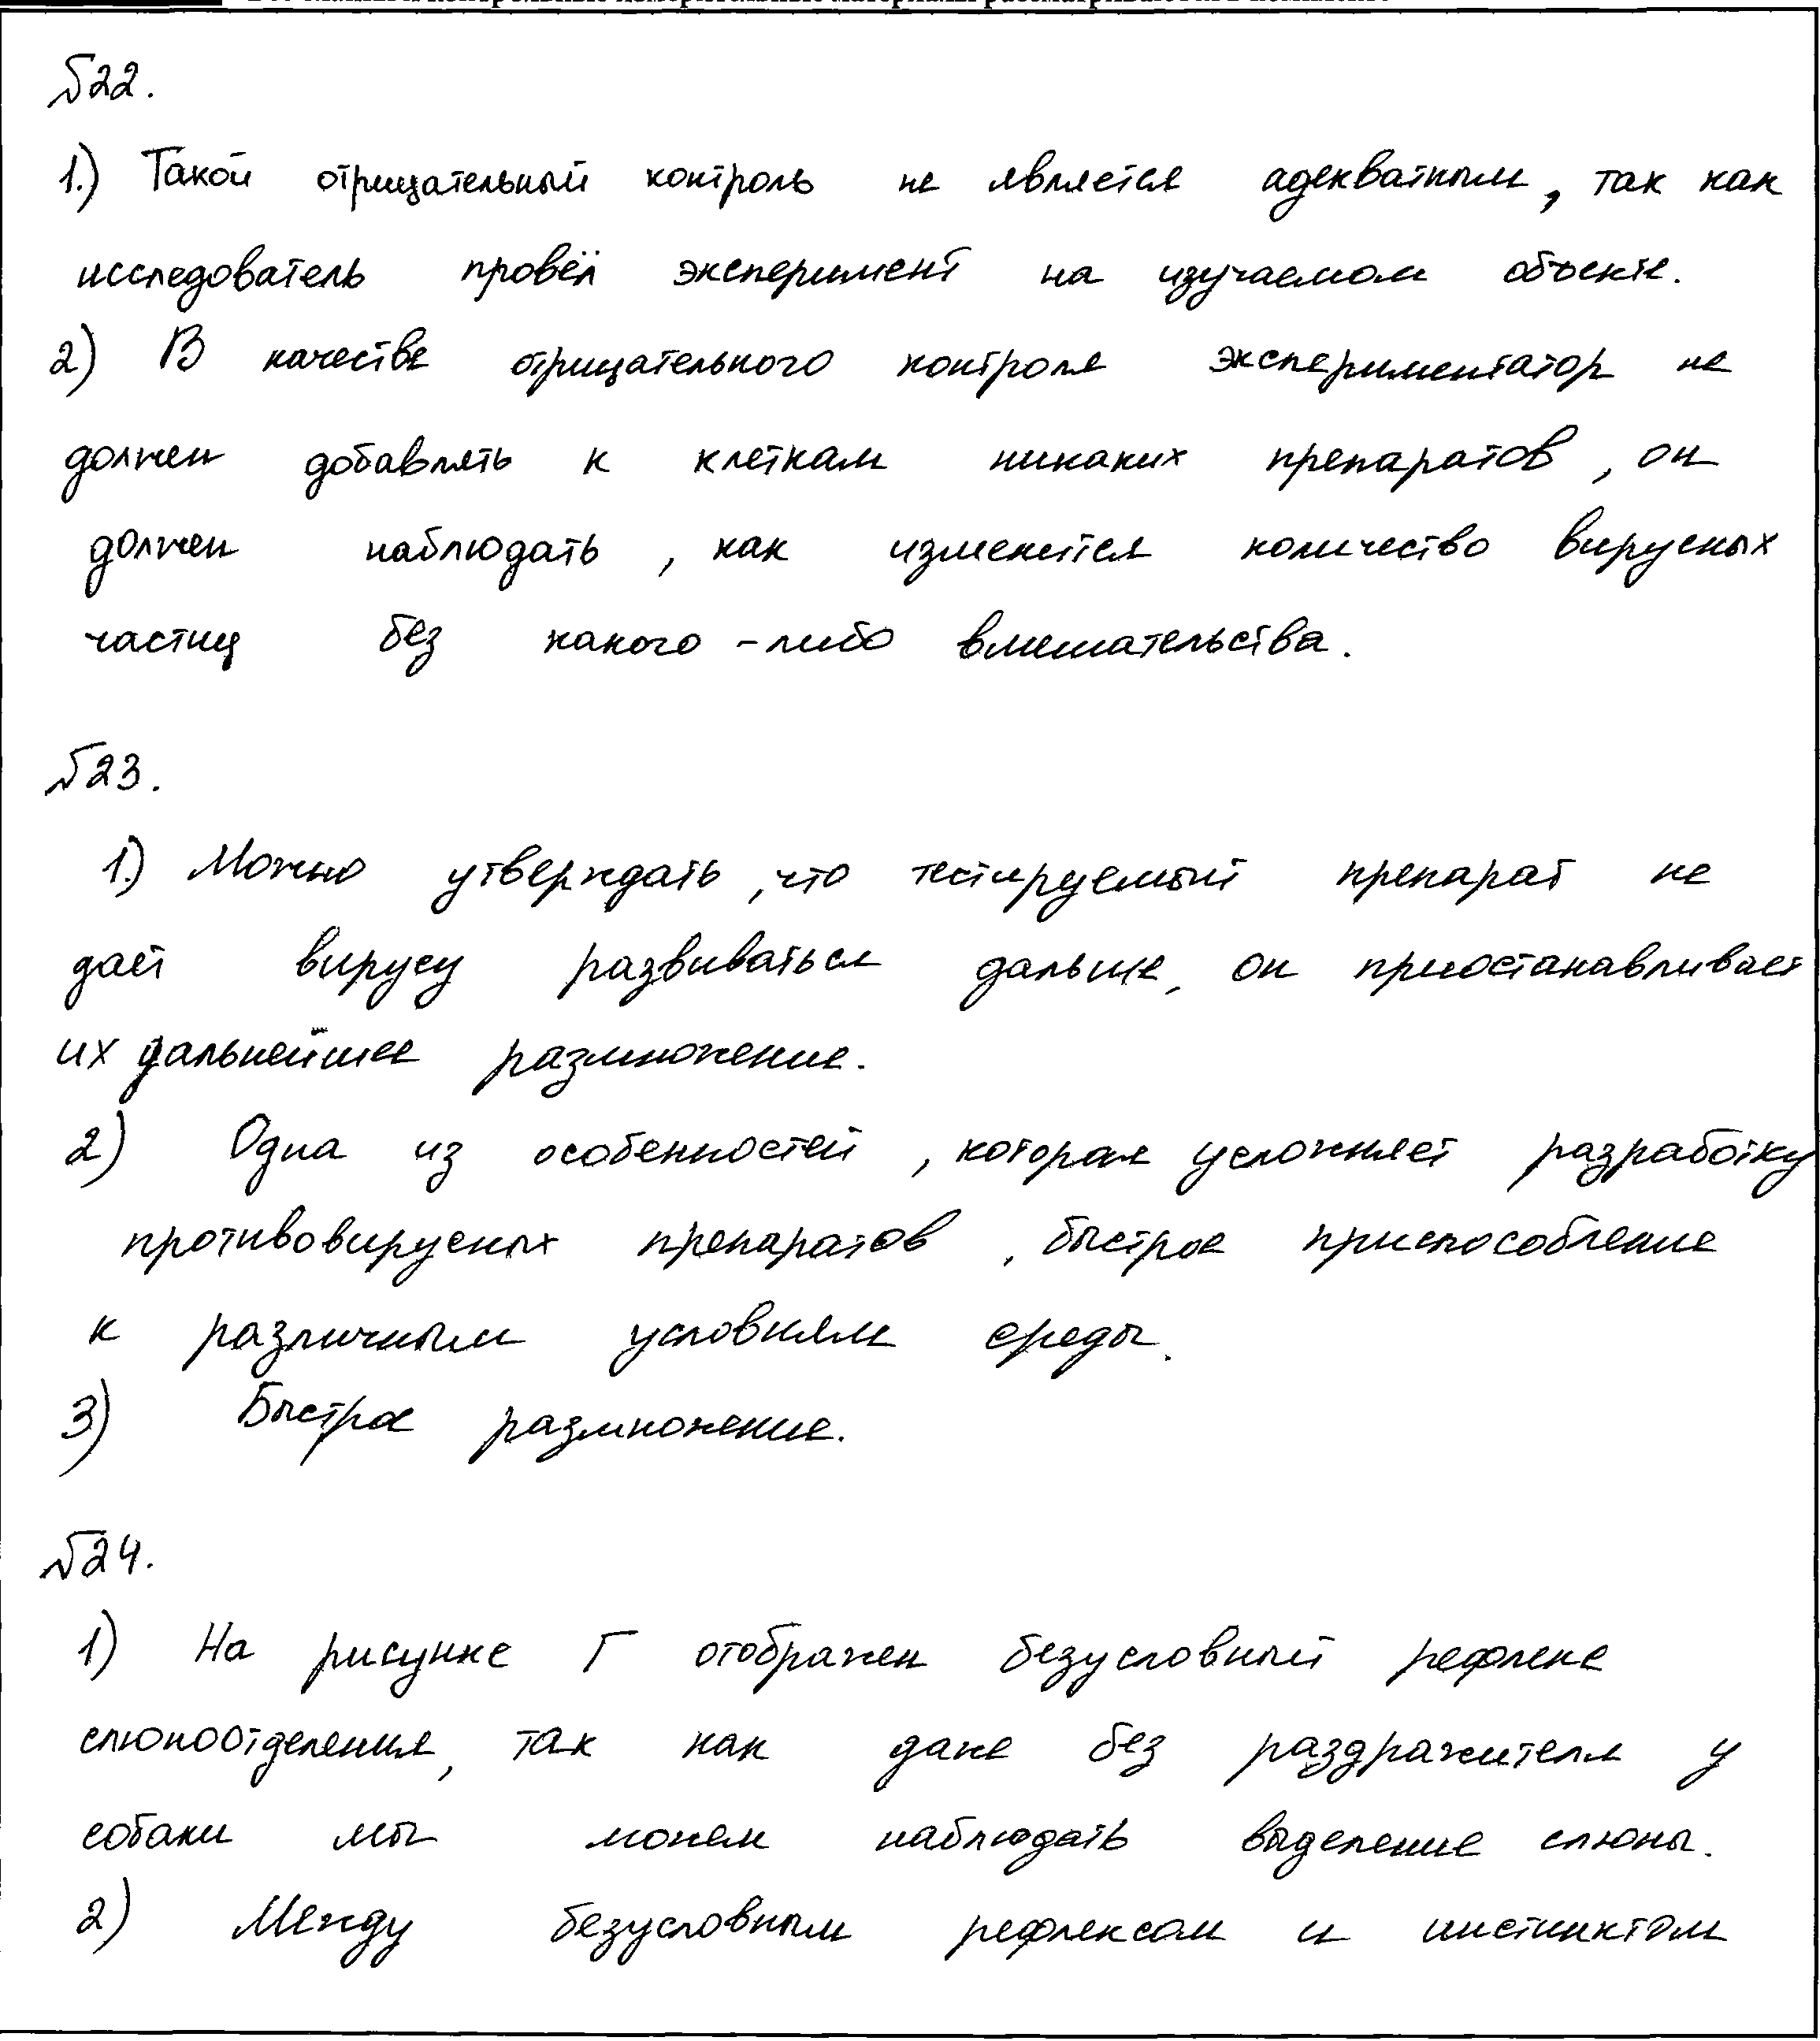 №22.
1.) Такой отрицательный контроль не является адекватным, так как
исследователь провёл эксперимент на изучаемом объекте.
2) В качестве отрицательного контроля экспериментатор не
должен добавлять к клеткам никаких препаратов, он
должен наблюдать, как изменяется количество вирусных
частиц без какого-либо вмешательства.
№23.
1.) Можно утверждать, что тестируемый препарат не
даёт вирусу развиваться дальше, он приостанавливает
их дальнейшее размножение.
2) Одна из особенностей, которая усложняет разработку
противовирусных препаратов, быстрое приспособление
к различным условиям среды.
3) Быстрое размножение.
№24.
1) На рисунке Г отображен безусловный рефлекс
слюноотделения, так как даже без раздражителя у
собаки мы можем наблюдать выделение слюны.
2) Между безусловным рефлексом и инстинктом